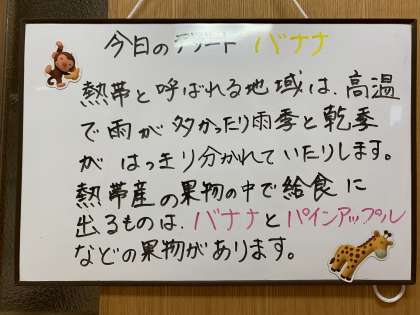 今日のデザート バナナ
熱帯と呼ばれる地域は、高温
で雨が多かったり雨季と乾季
がはっきり分かれていたりします。
熱帯産の果物の中で給食に
出るものは、バナナとパインアップル
などの果物があります。